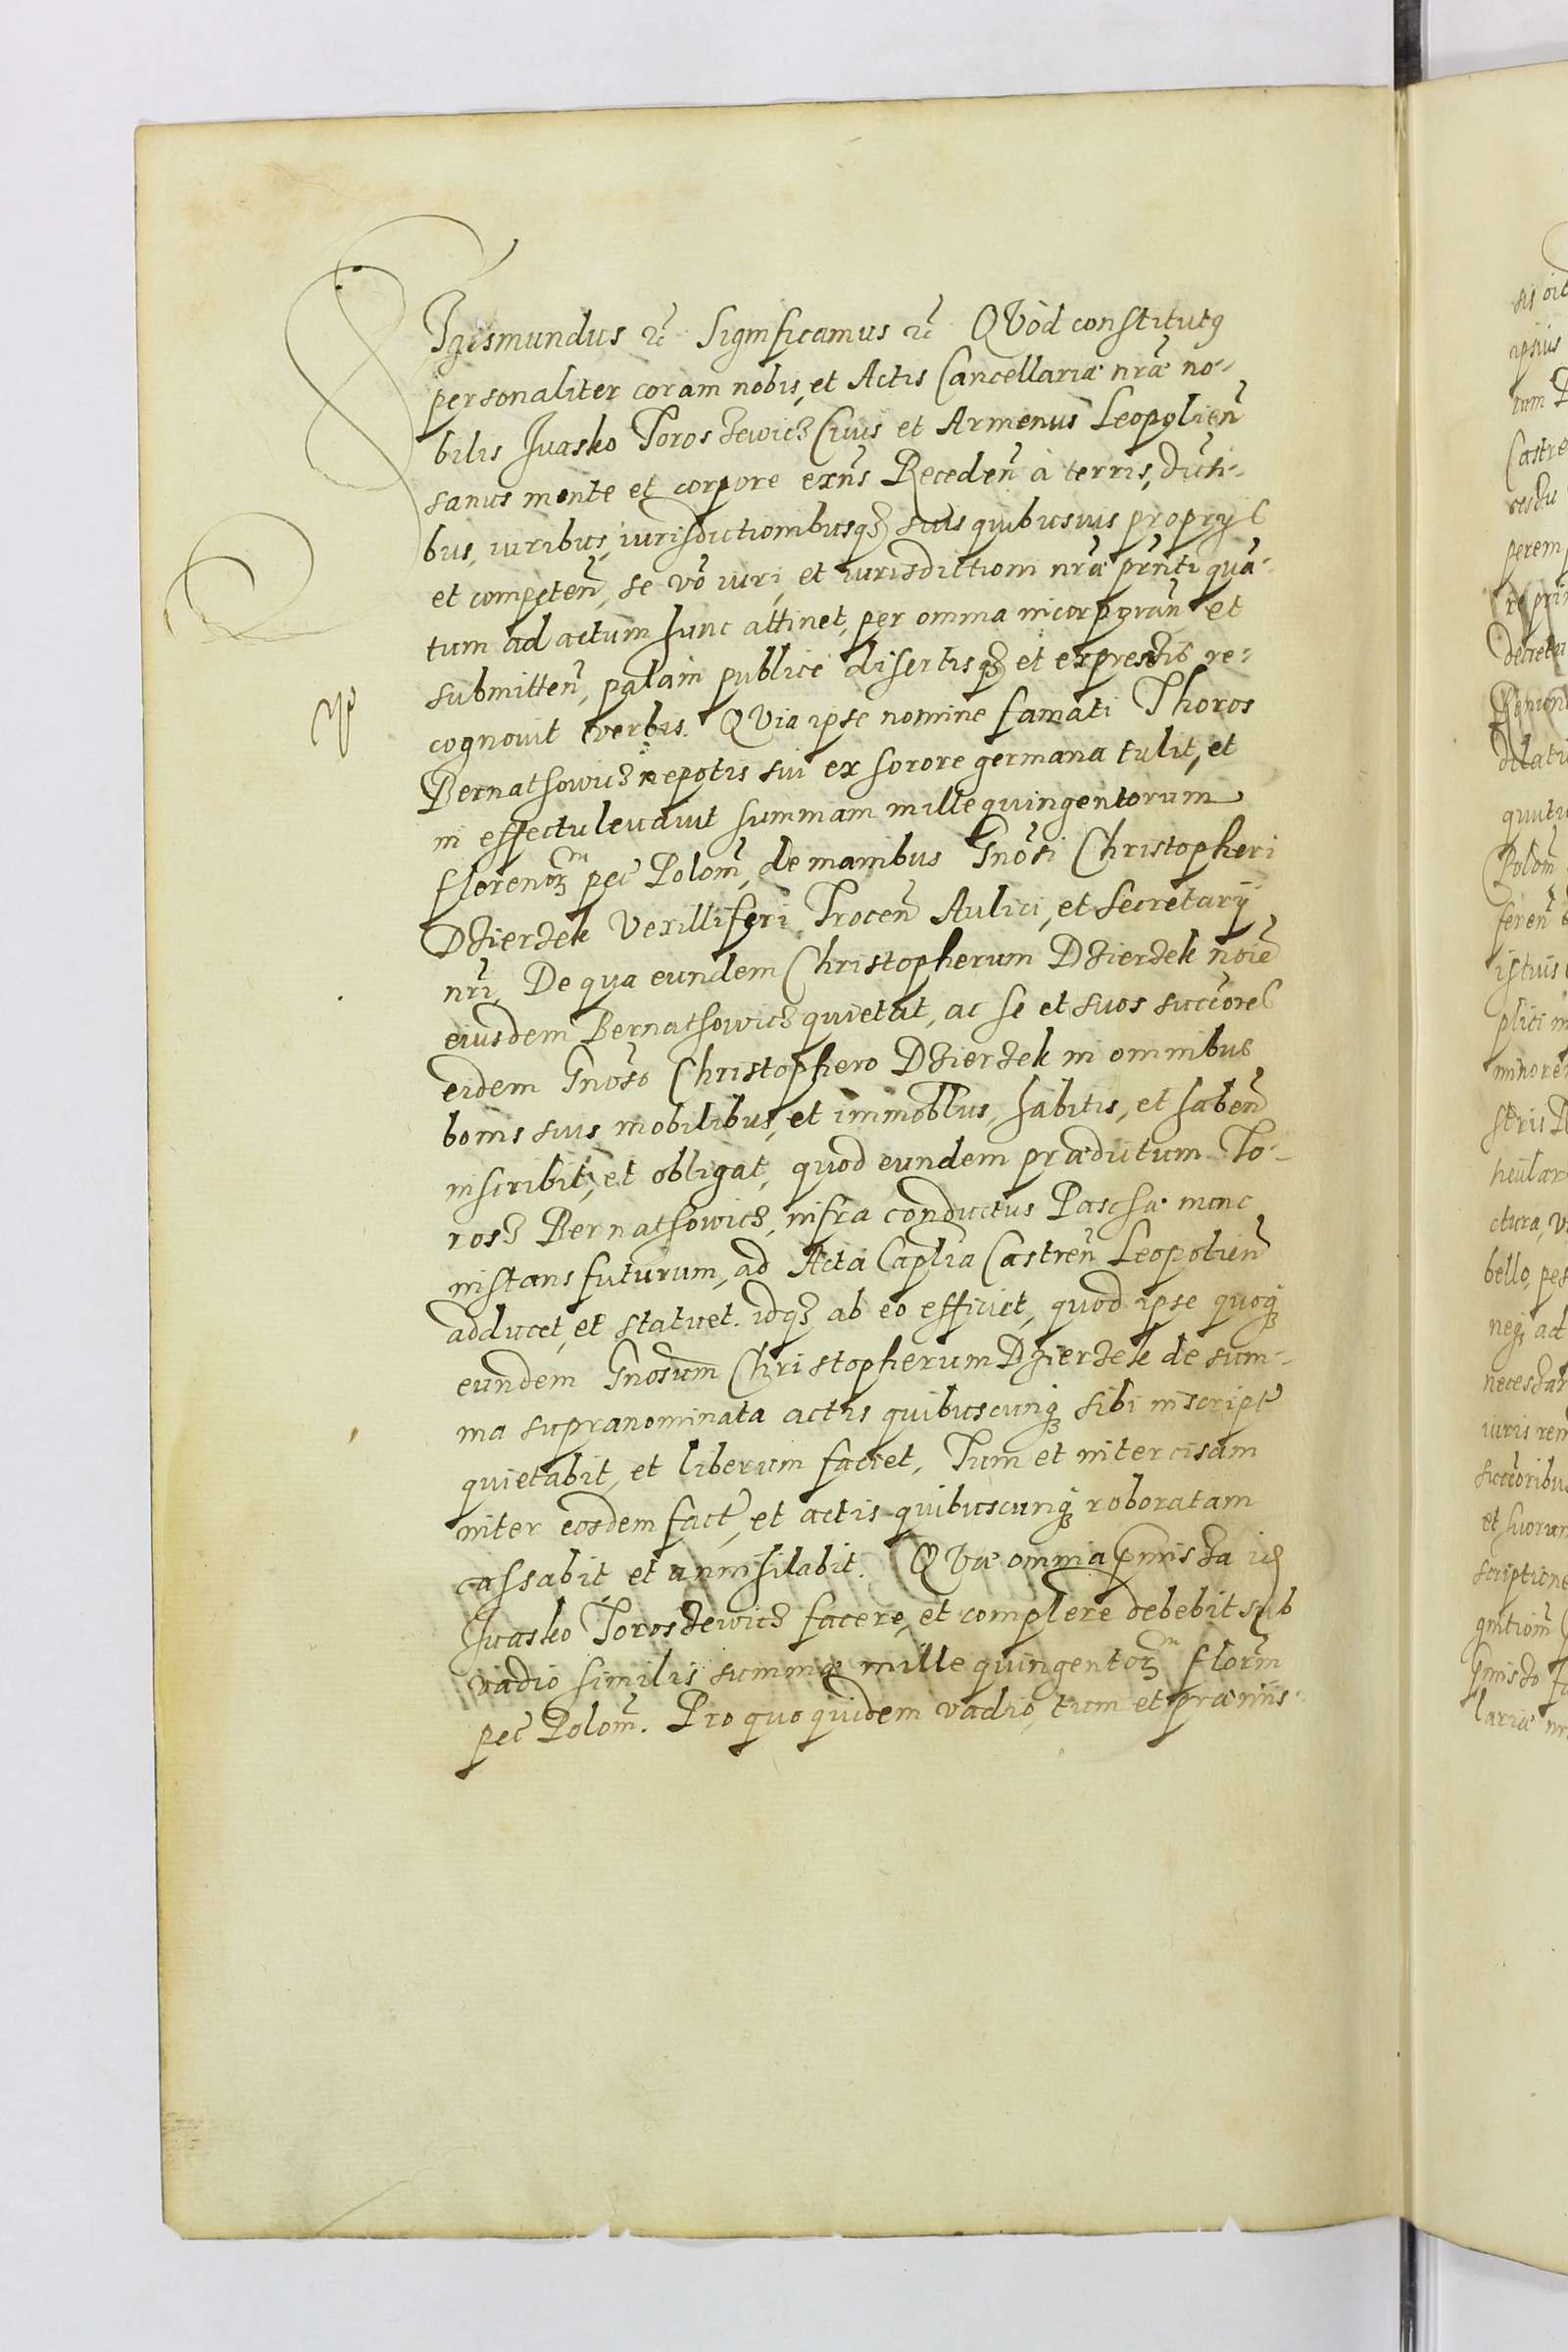 Sigismundus etc̃ Significamus etc̃ QVod constitutꝯ
personaliter coram nobis, et Actis Cancellariæ nr̃æ no-
bilis Iuasko Toroszewicz Ciuis et Armenus Leopolien̄
sanus mente et corpore exn̄s Receden̄ à terris, dicti-
bus, iuribus, iurisdictionibusqꝫ suis quibusuis proprys
et competen̄, se vō iuri, et iurisdictioni nr̃æ prn̄ti quā-
tum ad actum hunc attinet, per omnia incorporan̄ et
submitten̄, palam publice disertisqꝫ et expressis re-
cognouit verbis. QVia ipse nomine famati Thoros
Bernathowicz nepotis sui ex sorore germana tulit, et
in effectu leuauit summam mille quingentorum
florenoꝝ m pec̃ Polon̄, de manibus Gn̄osi Christopheri
Dzierzek Vexilliferi Trocen̄ Aulici, et Secretarÿ
nr̃i, De qua eundem Christopherum Dzierzek noīe
eiusdem Bernathowicz quietat, ac se et suos succ̃ores
eidem Gn̄oso Christophero Dzierzek in omnibus
bonis suis mobilibus, et immobl̃us, habitis, et haben̄
inscribit, et obligat, quod eundem prædictum To-
rosz Bernathowicz, infra conductus Paschæ nunc
instans futurum, ad Acta Capl̃ia Castren̄ Leopolien̄
adducet, et statuet. idqꝫ ab eo efficiet, quod ipse quoqꝫ
eundem Gn̄osum Christopherum Dzierzek de sum-
ma supranominata actis quibuscunqꝫ sibi inscript̃
quietabit, et liberum faciet, Tum et intercisam
inter eosdem fact̃, et actis quibuscunqꝫ roboratam
cassabit, et annihilabit. QVæ omnia p̄missa id
Iuasko Toroszewicz facere, et complere debebit sub
vadio similis summæ mille quingentoꝝ m floren̄
pec̃ Polon̄. Pro quo quidem vadio, tum et præmis-